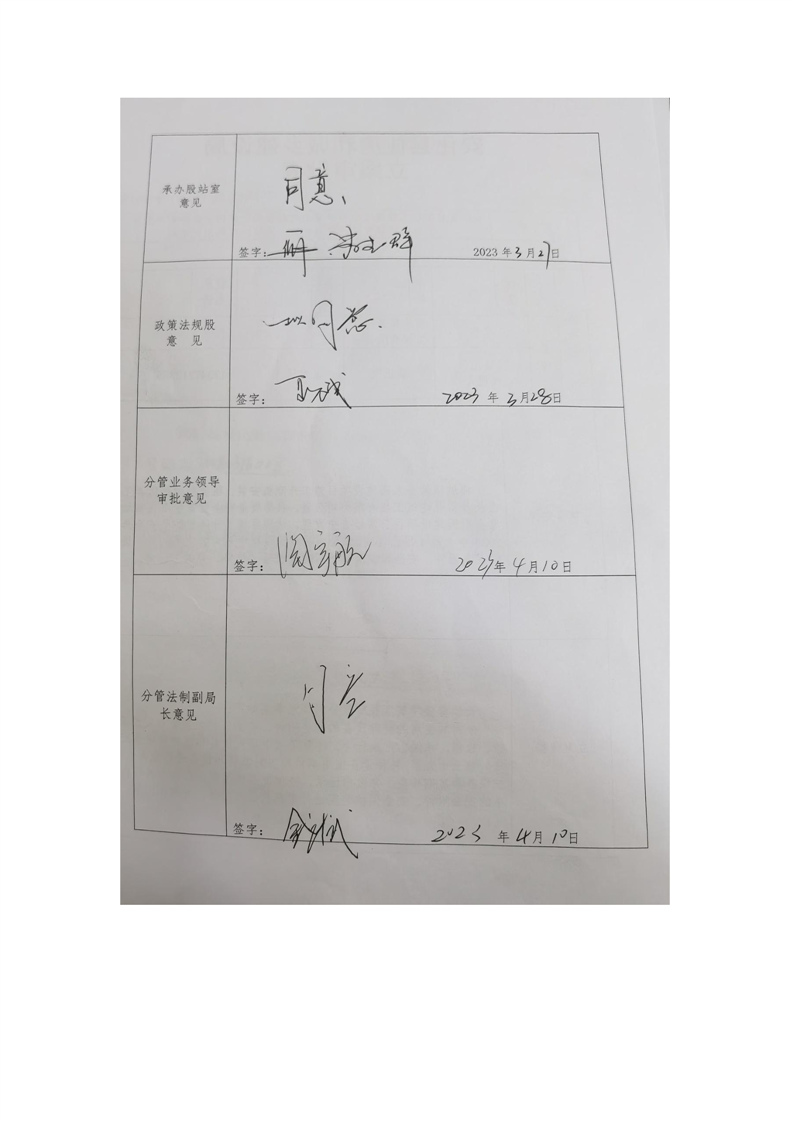 承办股站室
意见
同意、
签字:
2023年3月27日
政策法规股
意 见
拟同意.
签字:
2023年3月28日
分管业务领导
审批意见
签字:
2023年4月10日
分管法制副局
长意见
同意
签字:
2023年4月10日